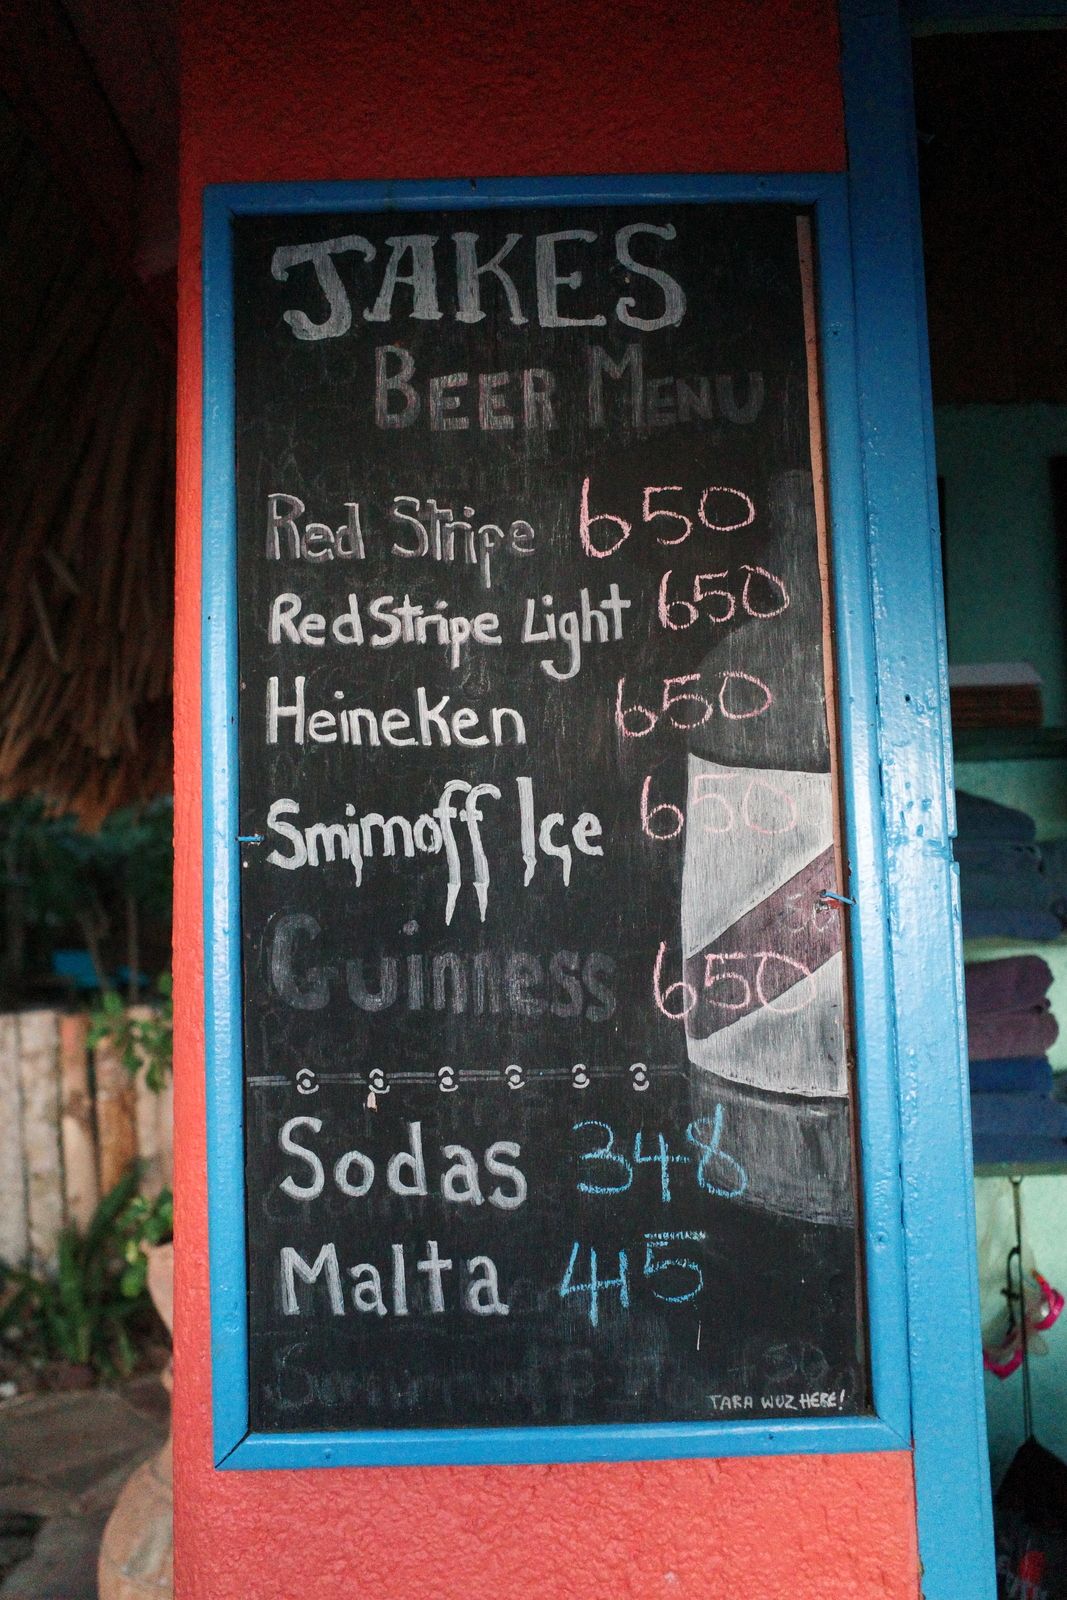 JAKES
BEER MENU
Red Stripe 650
Red Stripe Light 650
Heineken 650
Smirnoff Ice 650
Guinness 650
Sodas 348
Malta 415
TARA WUZ HERE!